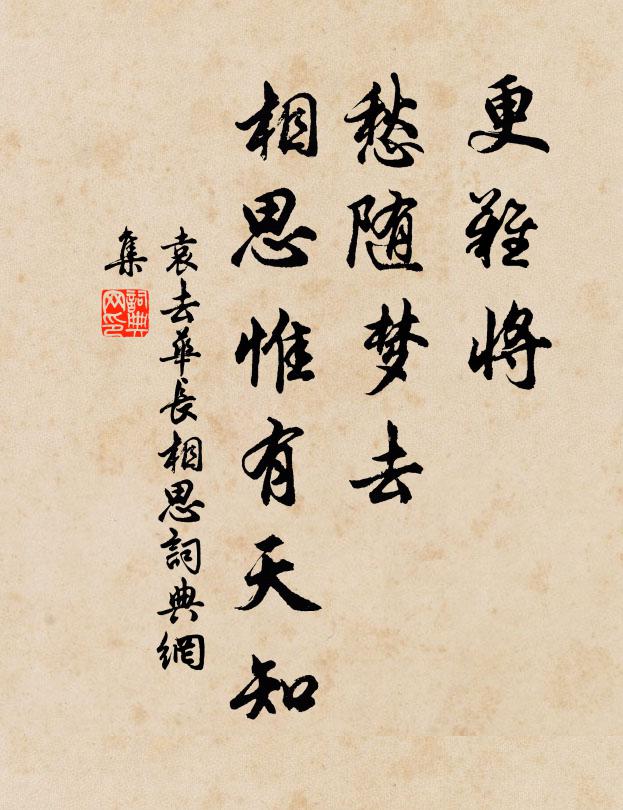 更難將
愁随梦去
相思惟有天知
袁去華長相思詞典網
集
詞典
网印